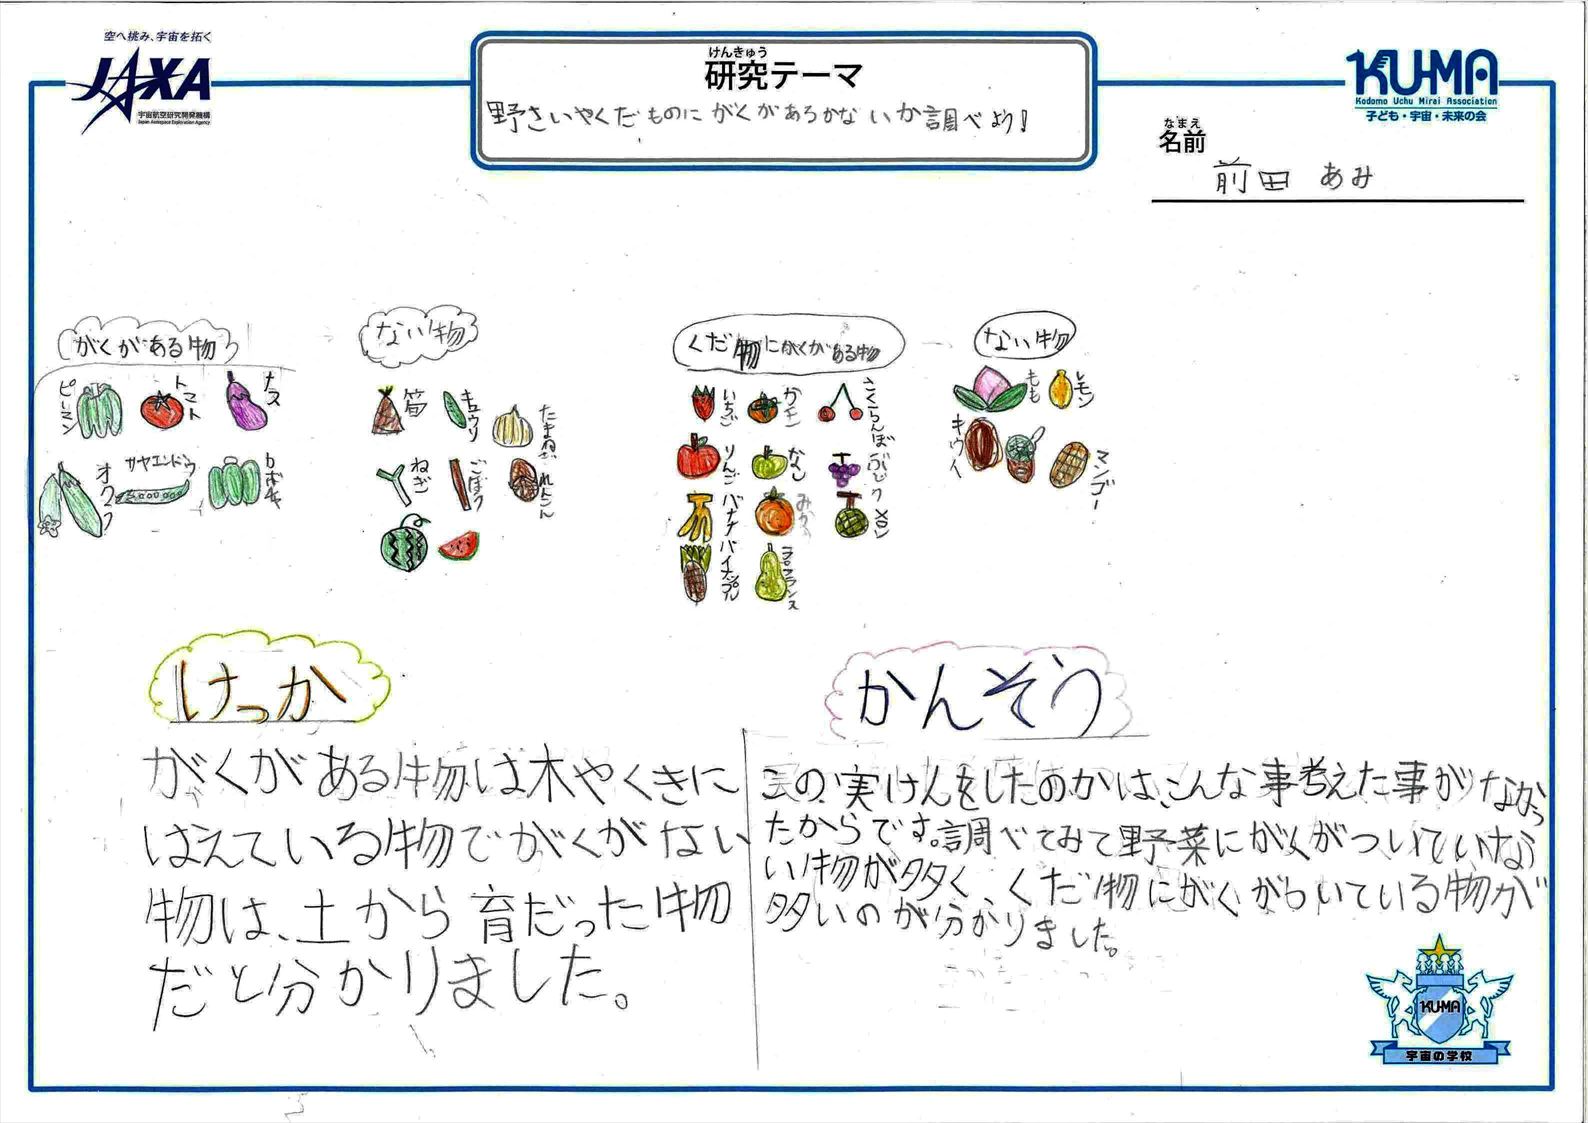 空へ挑み、宇宙を拓く
JAXA
宇宙航空研究開発機構
Japan Aerospace Exploration Agency
けんきゅう
研究テーマ
野さいやくだものにがくがあるかないか調べよう!
KU-MA
Kodomo Uchu Mirai Association
子ども・宇宙・未来の会
なまえ
名前
前田 あみ
がくがある物
ピーマン
トマト
ナス
オクラ
サヤエンドウ
カボチャ
ない物
筍
キュウリ
たまねぎ
ねぎ
ごぼう
れんこん
くだ物にがくがある物
いちご
かき
さくらんぼ
りんご
なし
ぶどう
バナナ
みかん
メロン
パイナップル
ラフランス
ない物
もも
レモン
キウイ
マンゴー
けっか
がくがある物は木やくきに
はえている物でがくがない
物は、土から育だった物
だと分かりました。
かんそう
この実けんをしたのかは、こんな事考えた事がなかっ
たからです。調べてみて野菜にがくがついていなら
い物が多く、くだ物にがくがついている物が
多いのが分かりました。
KU-MA
宇宙の学校